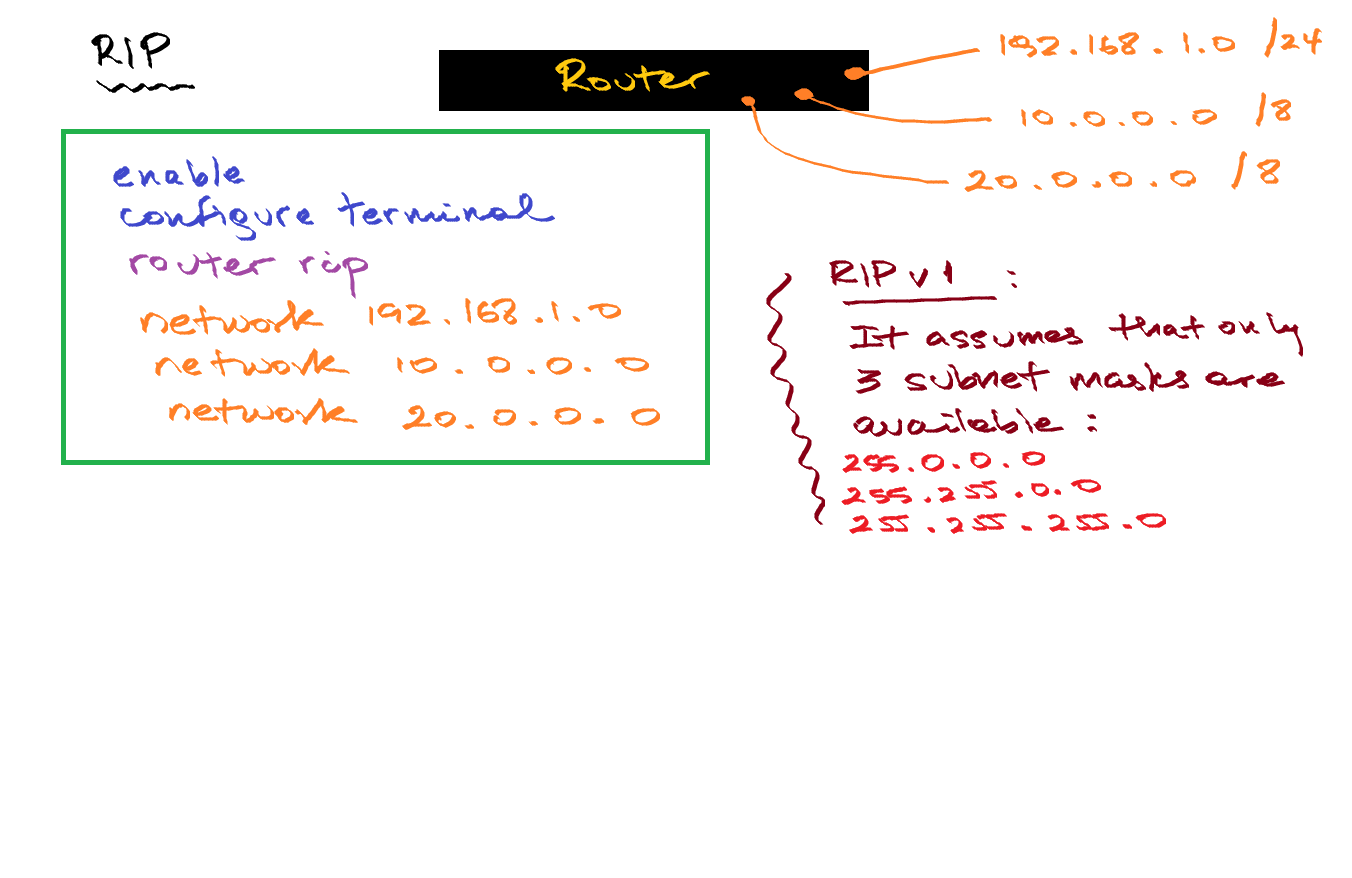 RIP
Router
192.168.1.0 /24
10.0.0.0 /8
20.0.0.0 /8
enable
configure terminal
router rip
network 192.168.1.0
network 10.0.0.0
network 20.0.0.0
RIP v1 :
It assumes that only
3 subnet masks are
available :
255.0.0.0
255.255.0.0
255.255.255.0